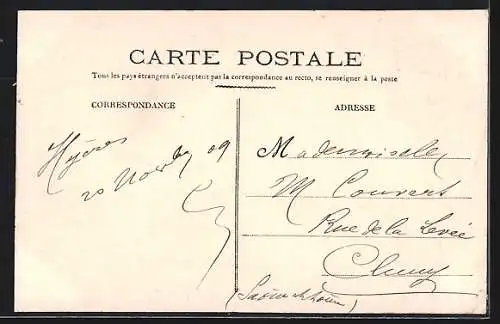 CARTE POSTALE
Tous les pays étrangers n'acceptent pas la correspondance au recto, se renseigner à la poste
CORRESPONDANCE
Hyères
20 Novembre 09
ADRESSE
Mademoiselle
M Couvert
Rue de la Levée
Cluny
(Saône et Loire)